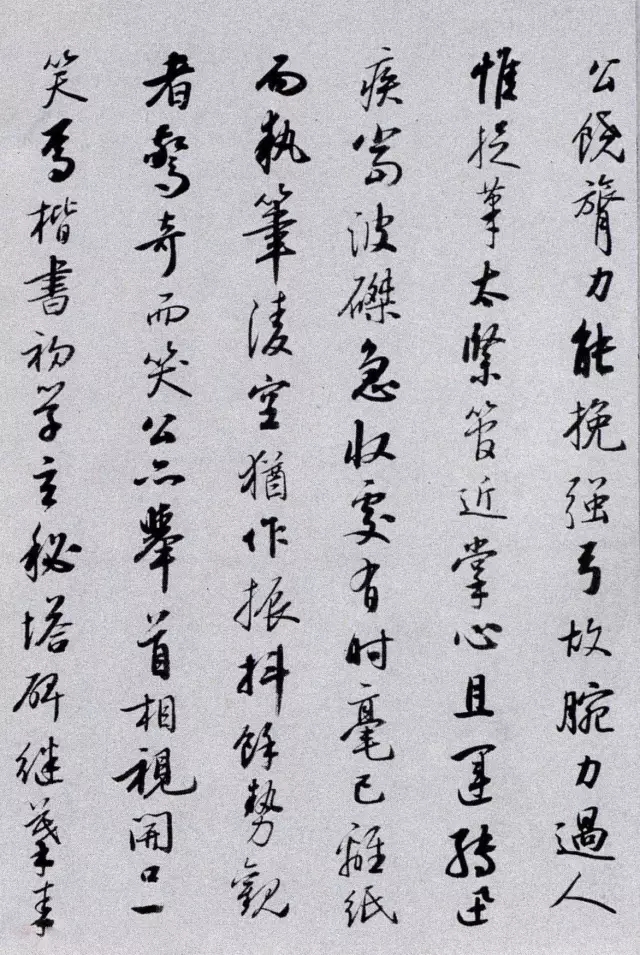 公饒膂力能挽强弓故腕力過人
惟捉筆太緊管近掌心且運轉迅
疾當波磔急收處有时毫已離紙
而執筆淩空猶作振抖餘勢觀
者驚奇而笑公亦舉首相視開口一
笑焉楷書初学玄秘塔碑继摹李